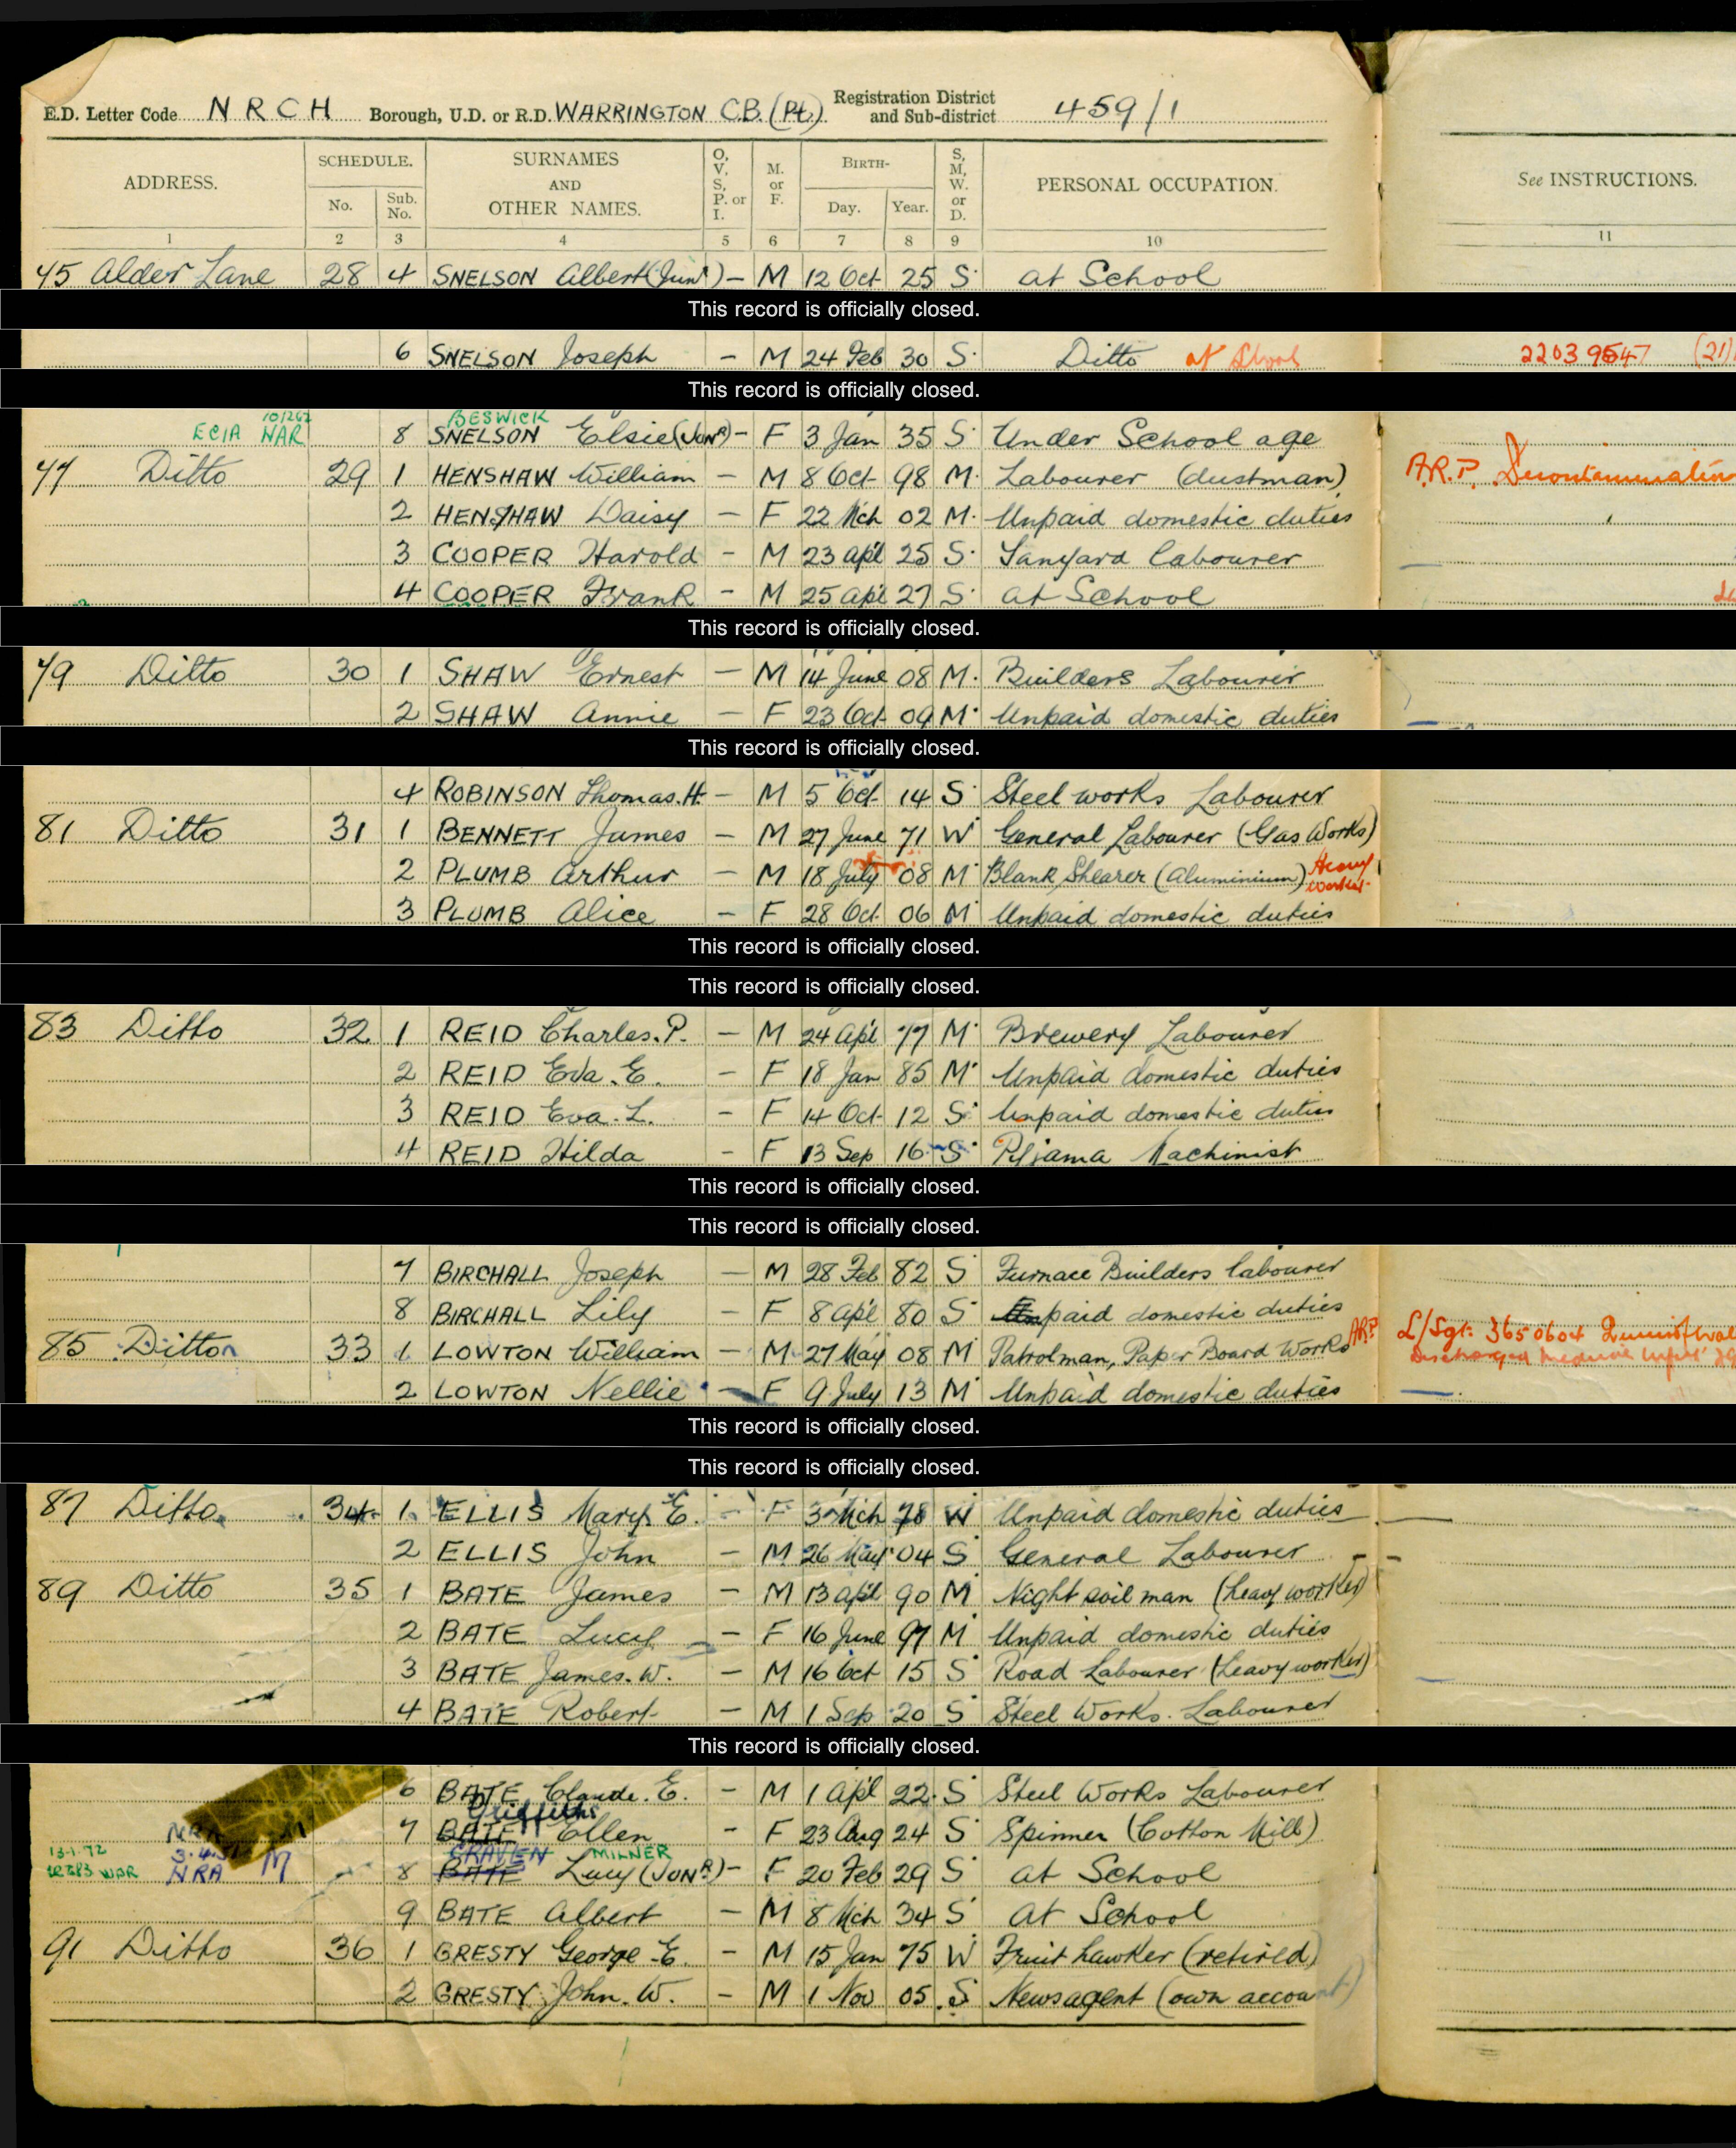 E.D. Letter Code N R C H Borough, U.D. or R.D. WARRINGTON C.B. (Pt.) Registration District and Sub-district 459/1
ADDRESS. SCHEDULE. No. Sub. No. SURNAMES AND OTHER NAMES. O, V, S, P. or I. M. or F. BIRTH- Day. Year. S, M, W. or D. PERSONAL OCCUPATION. See INSTRUCTIONS.
1 2 3 4 5 6 7 8 9 10 11
45 Alder Lane 28 4 SNELSON Albert (Junr) – M 12 Oct 25 S at School
This record is officially closed.
6 SNELSON Joseph – M 24 Feb 30 S Ditto at School 22039547 (21)
This record is officially closed.
10/262 BESWICK
ECIA NAR 8 SNELSON Elsie (JONR) – F 3 Jan 35 S Under School age
77 Ditto 29 1 HENSHAW William – M 8 Oct 98 M Labourer (dustman) A.R.P. Decontamination
2 HENSHAW Daisy – F 22 Mch 02 M Unpaid domestic duties
3 COOPER Harold – M 23 apl 25 S Tanyard Labourer
4 COOPER Frank – M 25 apl 27 S at School
This record is officially closed.
79 Ditto 30 1 SHAW Ernest – M 14 June 08 M Builders Labourer
2 SHAW Annie – F 23 Oct 09 M Unpaid domestic duties
This record is officially closed.
4 ROBINSON Thomas.H. – M 5 Oct 14 S Steel works Labourer
81 Ditto 31 1 BENNETT James – M 27 June 71 W General Labourer (Gas Works)
2 PLUMB Arthur – M 18 July 08 M Blank Shearer (Aluminium) Heavy worker
3 PLUMB Alice – F 28 Oct 06 M Unpaid domestic duties
This record is officially closed.
This record is officially closed.
83 Ditto 32 1 REID Charles.P. – M 24 Apl 77 M Brewery Labourer
2 REID Eva.E. – F 18 Jan 85 M Unpaid domestic duties
3 REID Eva.L. – F 14 Oct 12 S Unpaid domestic duties
4 REID Hilda – F 13 Sep 16 S Pyjama Machinist
This record is officially closed.
This record is officially closed.
7 BIRCHALL Joseph – M 28 Feb 82 S Furnace Builders labourer
8 BIRCHALL Lily – F 8 apl 80 S Unpaid domestic duties
85 Ditto 33 1 LOWTON William – M 27 May 08 M Patrolman, Paper Board Works A.R.P. L/Sgt. 3650604
Discharged
2 LOWTON Nellie – F 9 July 13 M Unpaid domestic duties
This record is officially closed.
This record is officially closed.
87 Ditto 34 1 ELLIS Mary E. – F 3 Mch 78 W Unpaid domestic duties
2 ELLIS John – M 26 May 04 S General Labourer
89 Ditto 35 1 BATE James – M 13 apl 90 M Night soil man (heavy worker)
2 BATE Lucy – F 16 June 97 M Unpaid domestic duties
3 BATE James.W. – M 16 Oct 15 S Road Labourer (heavy worker)
4 BATE Robert – M 1 Sep 20 S Steel Works Labourer
This record is officially closed.
6 BATE Claude.E. – M 1 Apl 22 S Steel Works Labourer
Griffiths
NRA M 7 BATE Ellen – F 23 Aug 24 S Spinner (Cotton Mill)
13-1-72 CRAVEN MILNER
NRA M 8 BATE Lucy (JONR) – F 20 Feb 29 S at School
9 BATE Albert – M 8 Mch 34 S At School
91 Ditto 36 1 GRESTY George E. – M 15 Jan 75 W Fruit hawker (retired)
2 GRESTY John.W. – M 1 Nov 05 S Newsagent (own account)